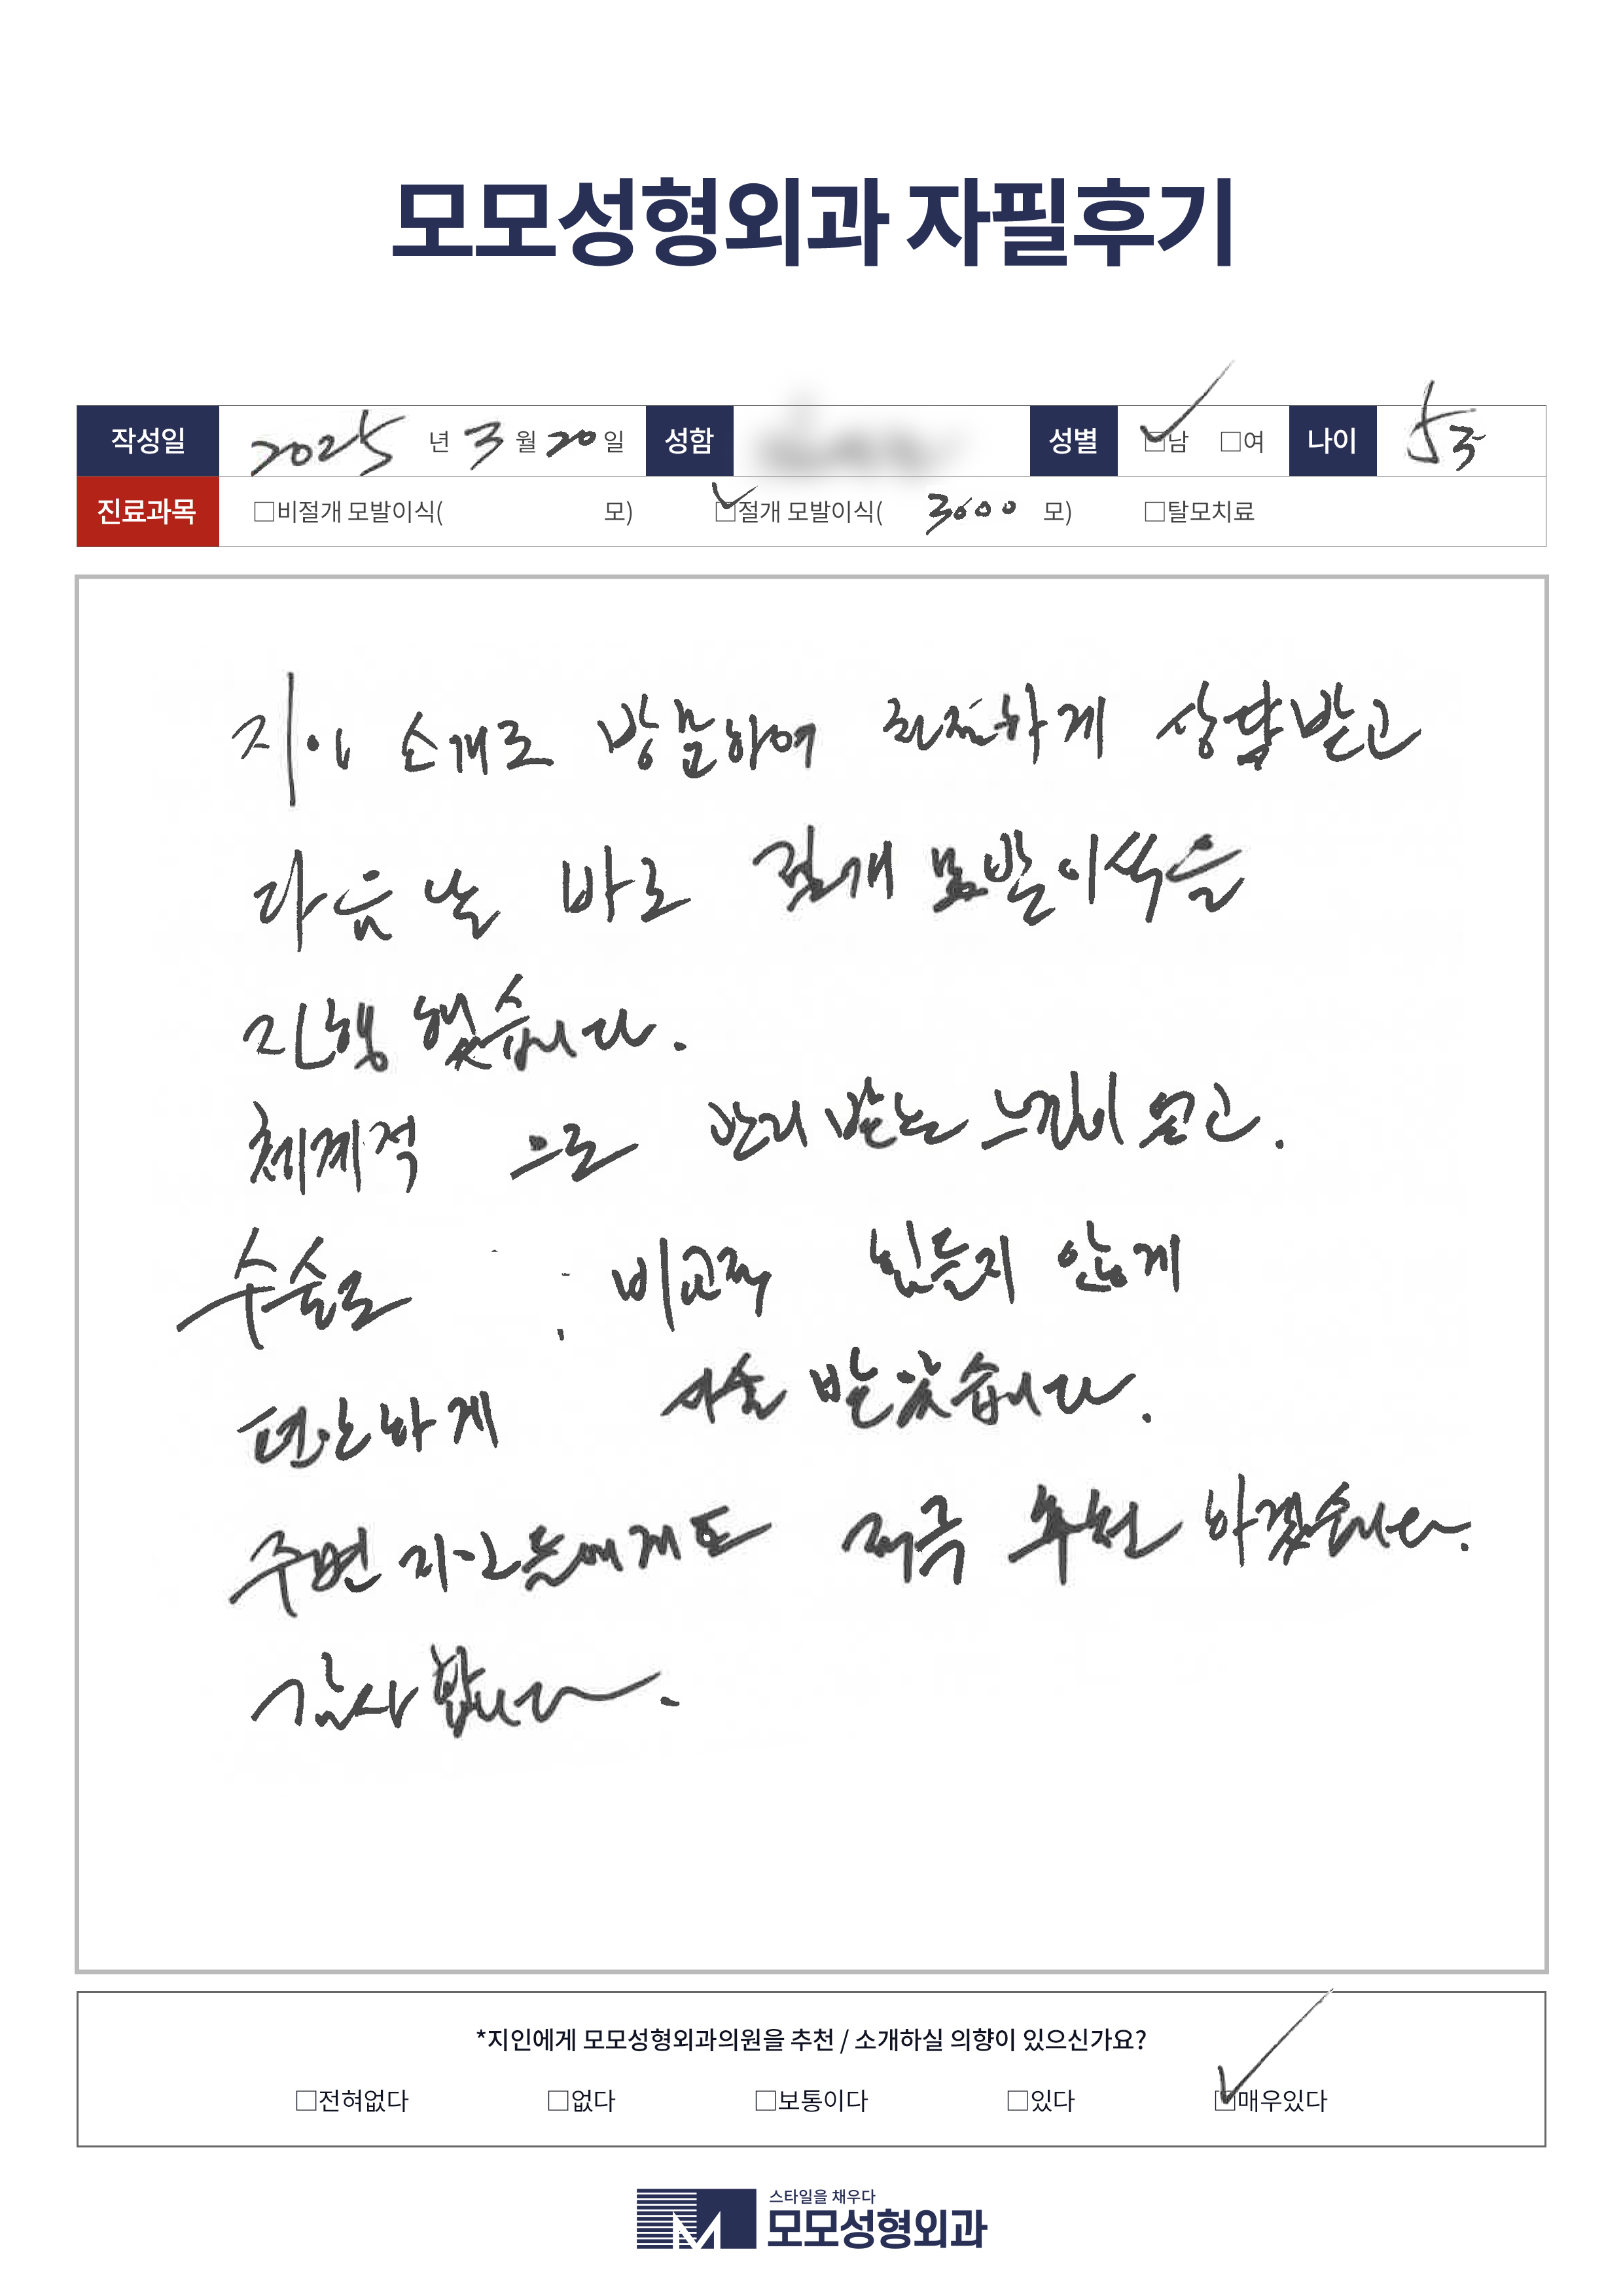 모모성형외과 자필후기
작성일 2025 년 3 월 20 일 성함 성별 ☑남 □여 나이 53
진료과목 □비절개 모발이식( 모) ☑절개 모발이식( 3600 모) □탈모치료
지인 소개로 방문하여 친절하게 상담받고
다음날 바로 절개 모발이식을
진행 했습니다.
체계적 으로 관리 받는 느낌이 들고.
수술도 비교적 힘들지 않게
편안하게 시술 받았습니다.
주변 지인들에게도 적극 추천 하겠습니다.
감사합니다.
*지인에게 모모성형외과의원을 추천 / 소개하실 의향이 있으신가요?
□전혀없다 □없다 □보통이다 □있다 ☑매우있다
스타일을 채우다
모모성형외과